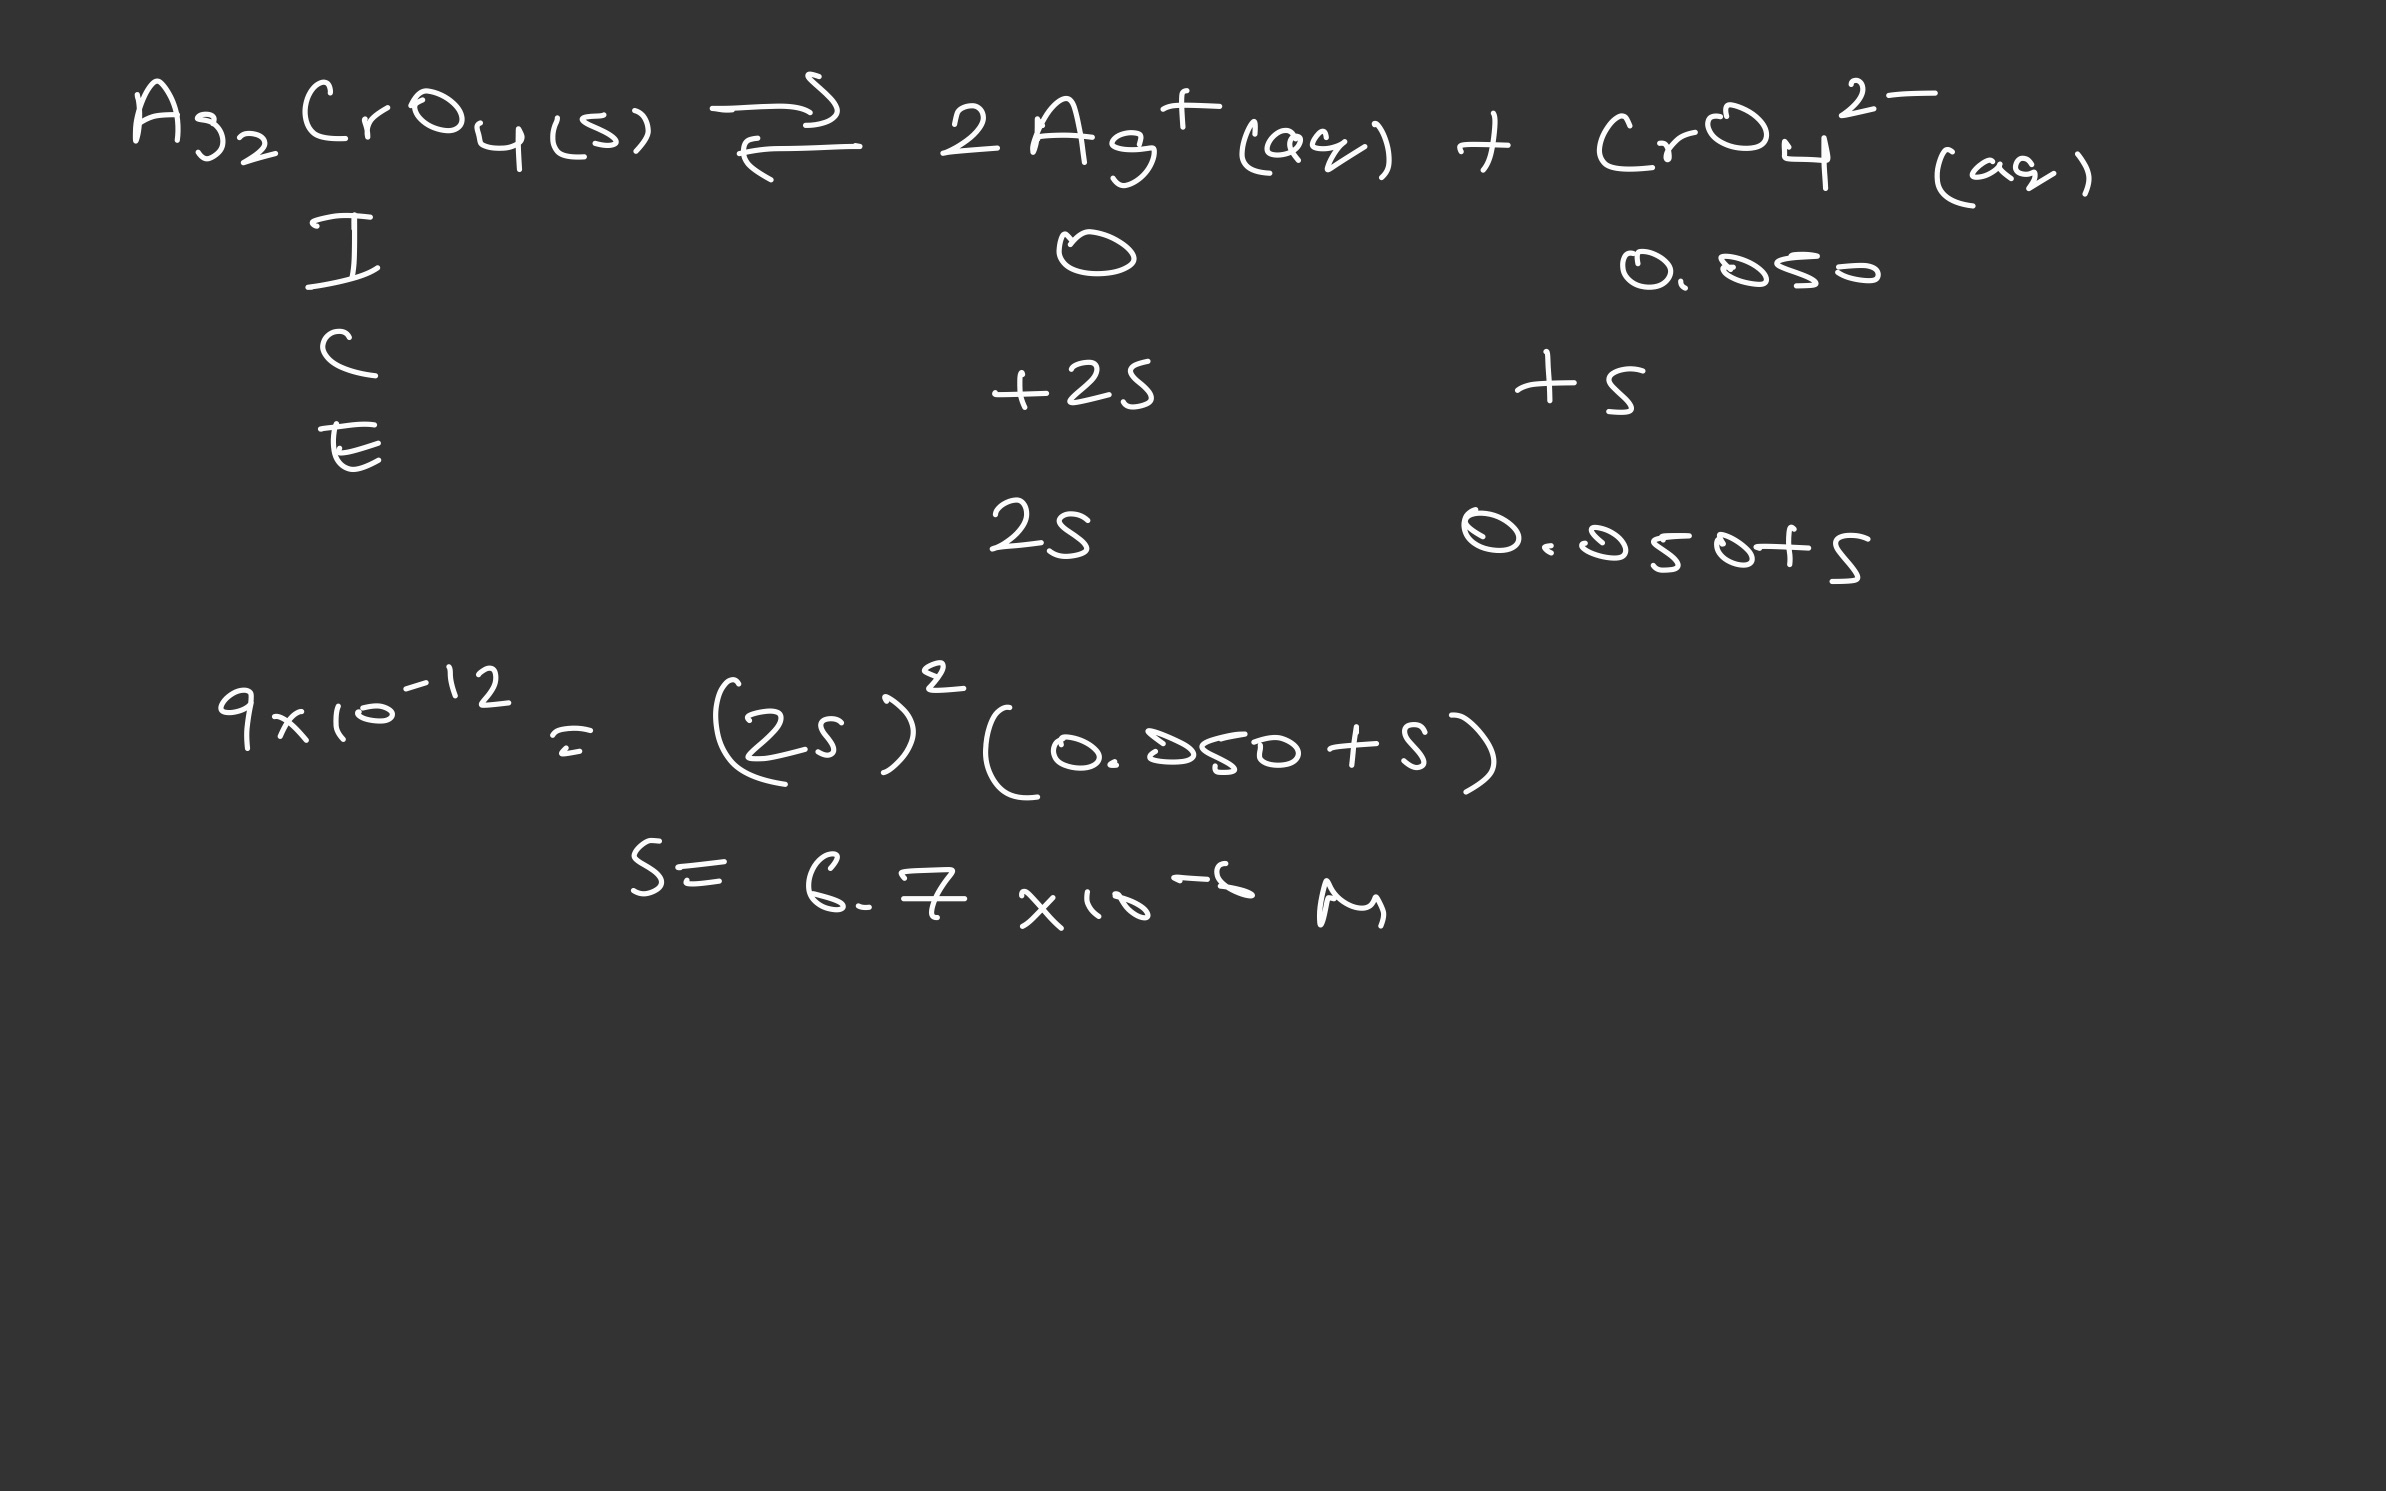 Ag₂CrO₄(s) ⇌ 2Ag⁺(aq) + CrO₄²⁻(aq)
I 0 0.050
C +2s +s
E
2s 0.050+s
9x10⁻¹² = (2s)²(0.050+s)
s= 6.7 x10⁻⁶ M